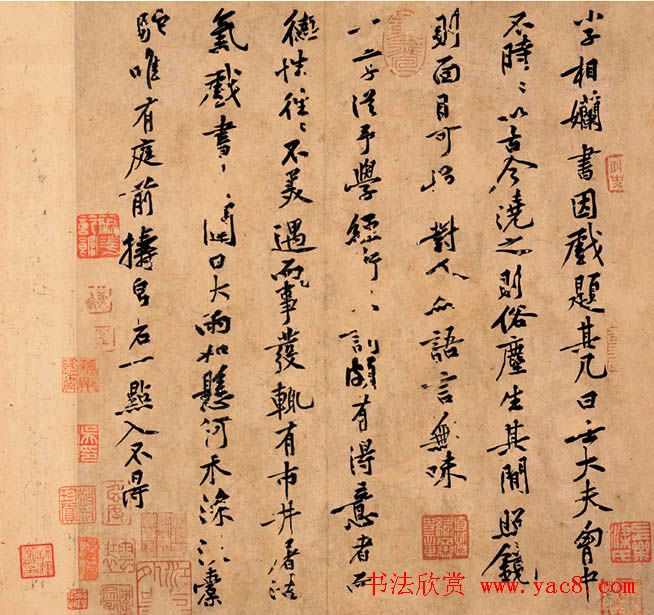 小子相孏書因戲題其几曰士大夫胷中
不時〻以古今澆之則俗塵生其間照鏡
則面目可憎對人亦語言無味
一二子從予學經行〻訓頗有得意者而
德性往〻不美遇事發輒有市井屠沽
氣戲書 大雨如懸河禾深
駝唯有庭前擣帛石一點入不得
书法欣赏 www.yac8.com